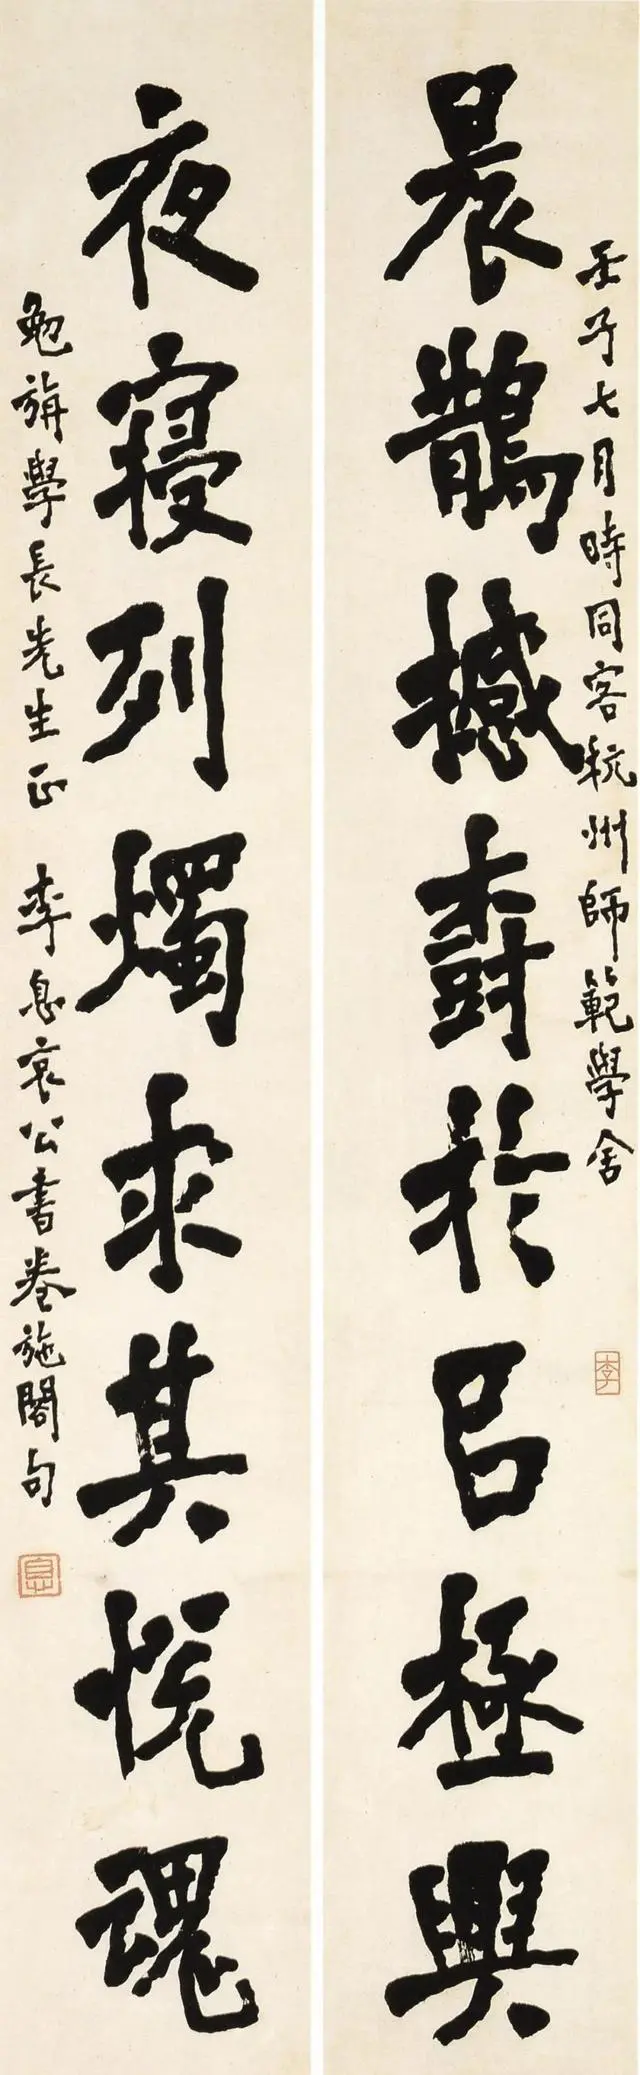 壬子七月時同客杭州師範學舍
李
晨鵲撼樹於㠯極興
夜寢列燭求其悦魂
勉旃學長先生正 李息哀公書卷施閣句
息